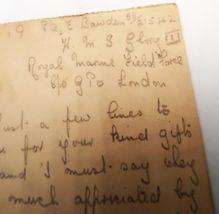 Bawden
H M S Glory
Royal Marine Field Force
c/o G P O London
Just a few lines to
for your kind gifts
and I must say they
much appreciated by